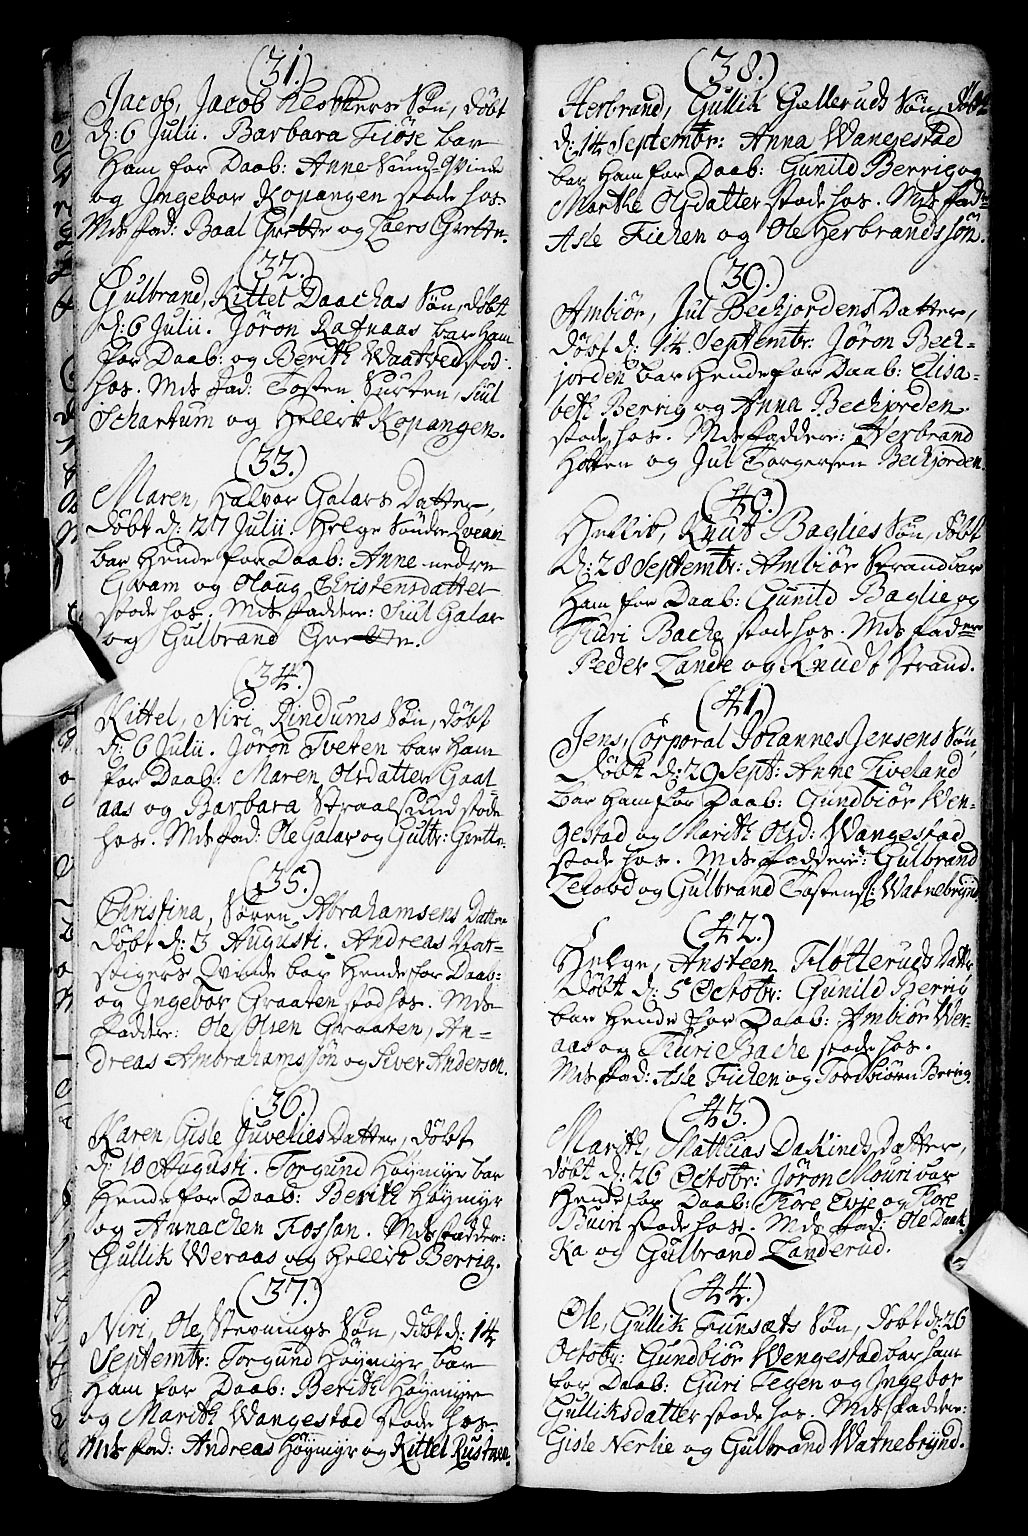 (31.)
Jacob, Jacob Søn, döbt
d: 6 Julii. Barbara Fiöse bar
ham for Daab: Anne Sund-Qvinde
og Ingebor Kopangen stode hos
Mdsfad: Baal Grette og Laers Grette.
(32.)
Gulbrand, Kittel Daachas Søn, döbt
d: 6 Julii. Jöron Rafnaas bar ham
for Daab: og Berith Waatved stod:
hos. Mdsfad: Tosten Siul
Schartum og Hellik Kopangen.
(33.)
Maren, Halvor Galars Datter,
döbt d: 27 Julii. Helge Søndre Qveen
bar hende for Daab: Anne nedre
Qvam og Olaug Christensdatter
stode hos. Mdsfadder: Siul Galar
og Gulbrand Grette.
(34.)
Kittel, Niri Rindums Søn, döbt
d: 6 Julii. Jöron Tveten bar ham
for Daab: Maren Olsdatter Gaal-
aas og Barbara Straalsund stode
hos. Mdsfad: Ole Galar og Gulbr: Grette.
(35.)
Christina, Søren Abrahamsens Datter
döbt d: 3 Augusti. Andreas Wat-
stigers Qvinde bar hende for Daab:
og Ingebor Graaten stod hos. Mds-
fadder: Ole Olsen Graaten, An-
dreas Ambrahamssön og Siver Anderson.
(36.)
Karen, Gisle Juvelies Datter, döbt
d: 10 Augusti. Torgund Höymyr bar
hende for Daab: Berith Höymyr
og Annachen Fossan. Mdsfadder:
Gullik Weraas og Hellik Berrig.
(37.)
Niri, Ole Stevnings Søn, döbt d: 14
Septembr: Torgund Höymyr bar
ham for Daab: Berith Höymyr
og Marith Wangestad stode hos
Mdsfad: Andreas Höymyr og Kittel Rustnen.
(38.)
Herbrand, Gullik Gelleruds Søn, döbt
d: 14 Septembr: Anna Wangestad
bar ham for Daab: Gunild Berrig og
Marthe Olsdatter stode hos. Mdsfad=
Asle Fichen og Ole Herbrandssön.
(39.)
Ambiör, Jul Beckjordens Datter,
döbt d: 14 Septembr: Jöron Beck-
jorden bar hende for Daab: Elisa-
beth Berrig og Anna Beckjorden
stode hos. Mdsfaddere: Herbrand
Holten og Jul Torgersen Beckjorden.
(40.)
Hellik, Knut Baglies Søn, döbt
d: 28 Septembr: Ambiör Strand bar
ham for Daab: Gunild Baglie og
Kuri Bache stode hos. Mdsfad=
Peder Lande og Knudt Strand.
(41)
Jens, Corporal Johannes Jensens Søn
Döbt d: 29 Sept: Anne Fiveland
bar ham for Daab: Gundbiör Wen-
gestad og Marith Olsd: Wangestad
stode hos. Mdsfadder: Gulbrand
og Gulbrand Tostens: Watnebrÿnd
(42.)
Helge, Ansteen Flötteruds Datter
Döbt d: 5 Octobr: Gunild Berrig
bar hende for Daab: Ambiör Wer-
aas og Kuri Bache stode hos.
Mdsfad: Asle Fichen og Torbiörn Berrig.
(43.)
Marith, Mathias Datter,
döbt d: 26 Octobr: Jöron Mouri bar
hende for Daab: Tore Evje og Tore
Buin stode hos. Mdsfad: Ole Daak
Ka og Gulbrand Landerud.
(44.)
Ole, Gullik Funsæts Søn, döbt d: 26
Octobr: Gundbiör Wengestad bar ham
for Daab: Guri Tegen og Ingebor
Gulliksdatter stode hos. Mdsfadder:
Gisle Nerlie og Gulbrand Watnebrÿnd.